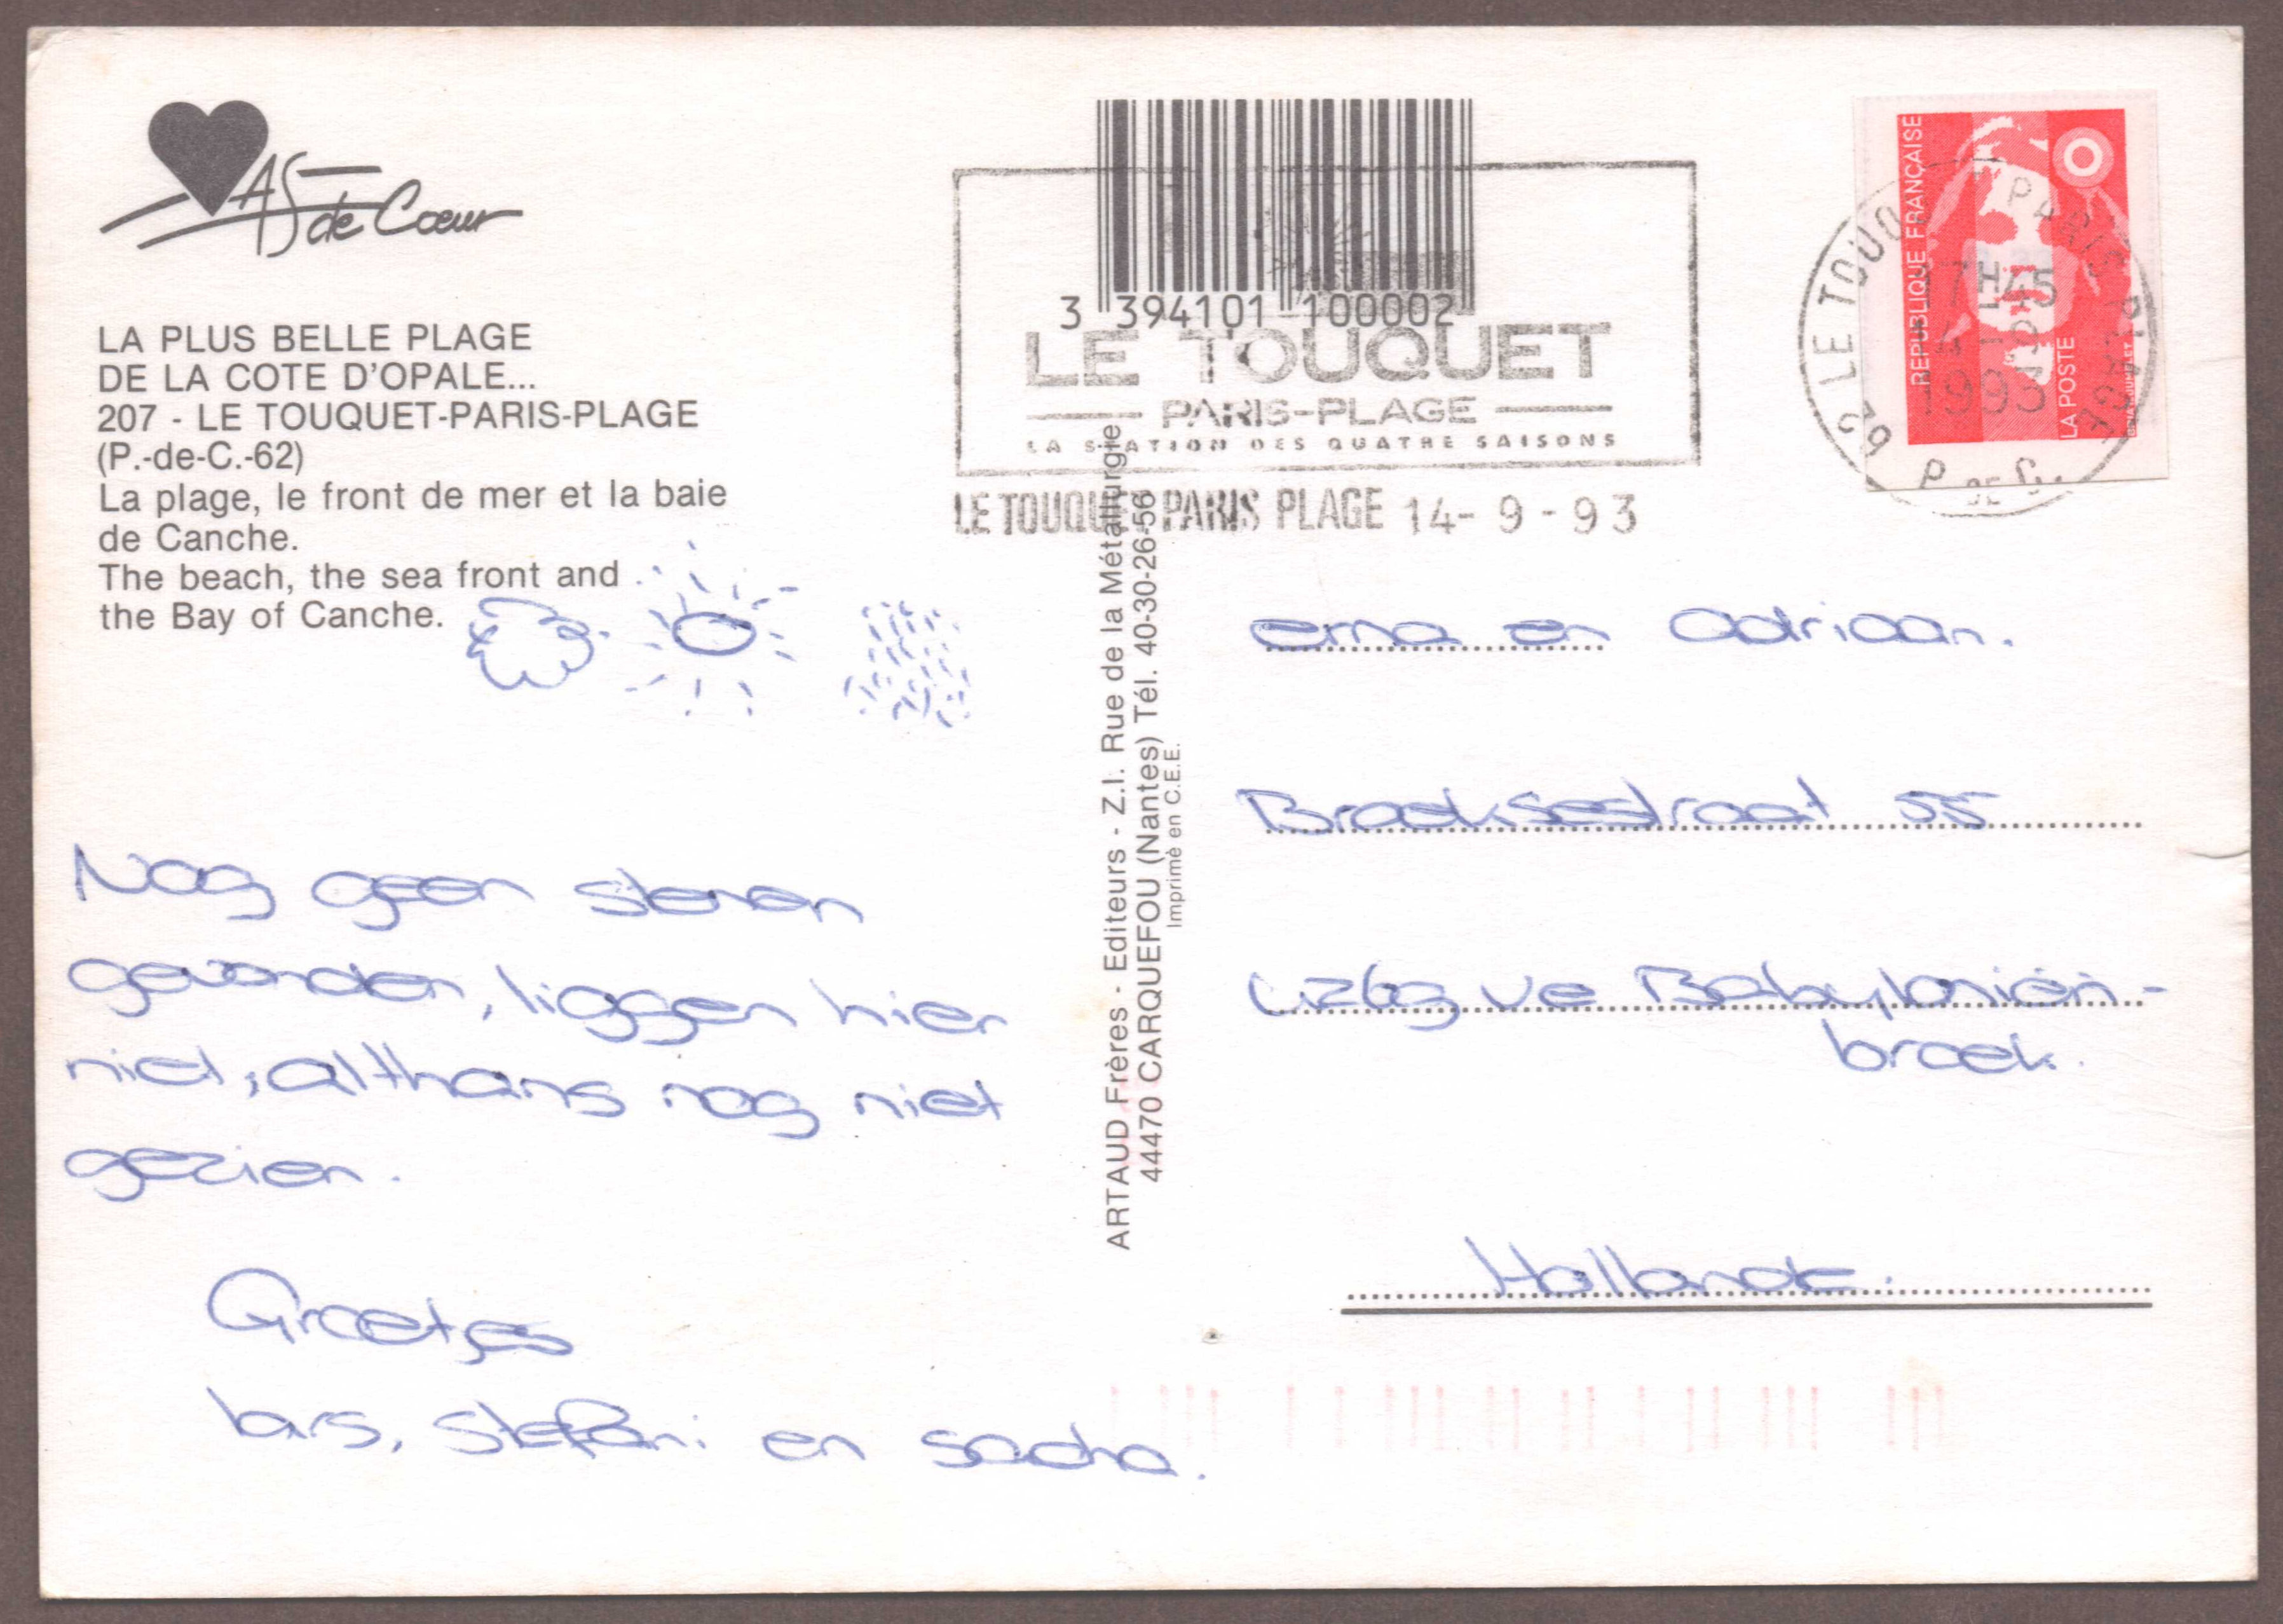 AS de Cœur
LA PLUS BELLE PLAGE
DE LA COTE D'OPALE...
207 - LE TOUQUET-PARIS-PLAGE
(P.-de-C.-62)
La plage, le front de mer et la baie
de Canche.
The beach, the sea front and
the Bay of Canche.
Nog geen stenen
gevonden, liggen hier
niet, althans nog niet
gezien.
Groetjes
lars, stefani en sacha.
ARTAUD Frères - Editeurs - Z.I. Rue de la Métallurgie
44470 CARQUEFOU (Nantes) Tél. 40-30-26-56
Imprimé en C.E.E.
3 394101 100002
LE TOUQUET
PARIS-PLAGE
LA STATION DES QUATRE SAISONS
LE TOUQUET PARIS PLAGE 14- 9 - 93
REPUBLIQUE FRANÇAISE
LA POSTE
62 LE TOUQUET PARIS PLAGE
17H45
1993
P. DE C.
erna en Adriaan.
Broeksestraat 55
4269 ve Babyloniën-
broek.
Hollande.